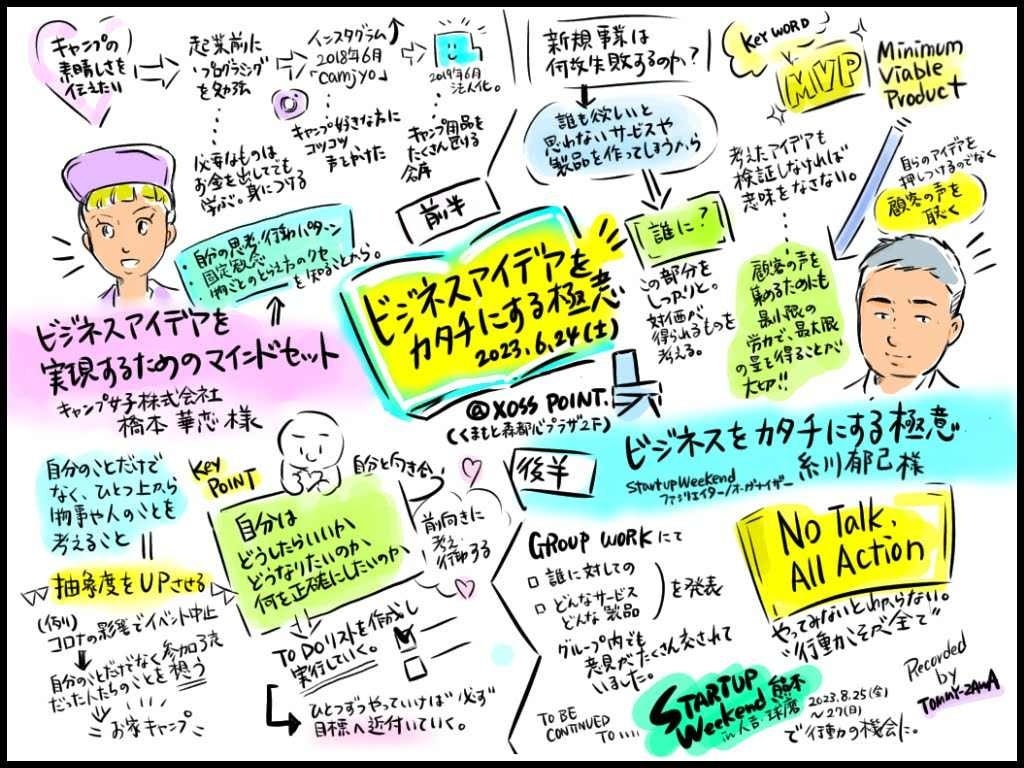 キャンプの
素晴しさを
伝えたい
起業前に
プログラミング
を勉強
インスタグラム
2018年6月
「camjyo」
2019年6月
法人化。
必要なものは
お金を出してでも
学ぶ。身につける
キャンプ好きな方に
コツコツ
声をかけた
キャンプ用品を
たくさん置ける
倉庫
・自分の思考・行動パターン
・固定観念
・物ごとのとらえ方のクセ
を知ることから。
ビジネスアイデアを
実現するためのマインドセット
キャンプ女子株式会社
橋本 華恋 様
前半
ビジネスアイデアを
カタチにする極意
2023.6.24(土)
@XOSS POINT.
(くまもと森都心プラザ2F)
自分のことだけで
なく、ひとつ上から
物事や人のことを
考えること
抽象度をUPさせる
(例)
コロナの影響でイベント中止
自分のことだけでなく参加予定
だった人たちのことを想う
お家キャンプ
KEY
POINT
自分と向き合い
自分は
どうしたらいいか、
どうなりたいのか、
何を正確にしたいのか、
前向きに
考え
行動する
TO DOリストを作成し
実行していく。
ひとつずつやっていけば"必ず"
目標へ近付いていく。
新規事業は
何故失敗するのか?
誰も欲しいと
思わないサービスや
製品を作ってしまうから
誰に?
この部分を
しっかりと。
対価が
得られるものを
考える。
KEY WORD
MVP
Minimum
Viable
Product
考えたアイデアも
検証しなければ
意味をなさない。
自らのアイデアを
押しつけるのでなく
顧客の声を
聴く
顧客の声を
集めるためにも
最小限の
労力で、最大限
の量を得ることが
大切!!
後半
ビジネスをカタチにする極意
Startup Weekend
ファシリテイター/オーガナイザー
糸川郁己 様
GROUP WORKにて
□ 誰に対しての
□ どんなサービス
どんな製品
を発表
グループ内でも
意見がたくさん交されて
いました。
No Talk,
All Action
やってみないとわからない。
"行動こそが全て"
TO BE
CONTINUED
TO.....
STARTUP
Weekend 熊本
in 人吉・球磨
2023.8.25(金)
〜27(日)
で行動の機会に。
Recorded
by
TOMMY-ZAWA